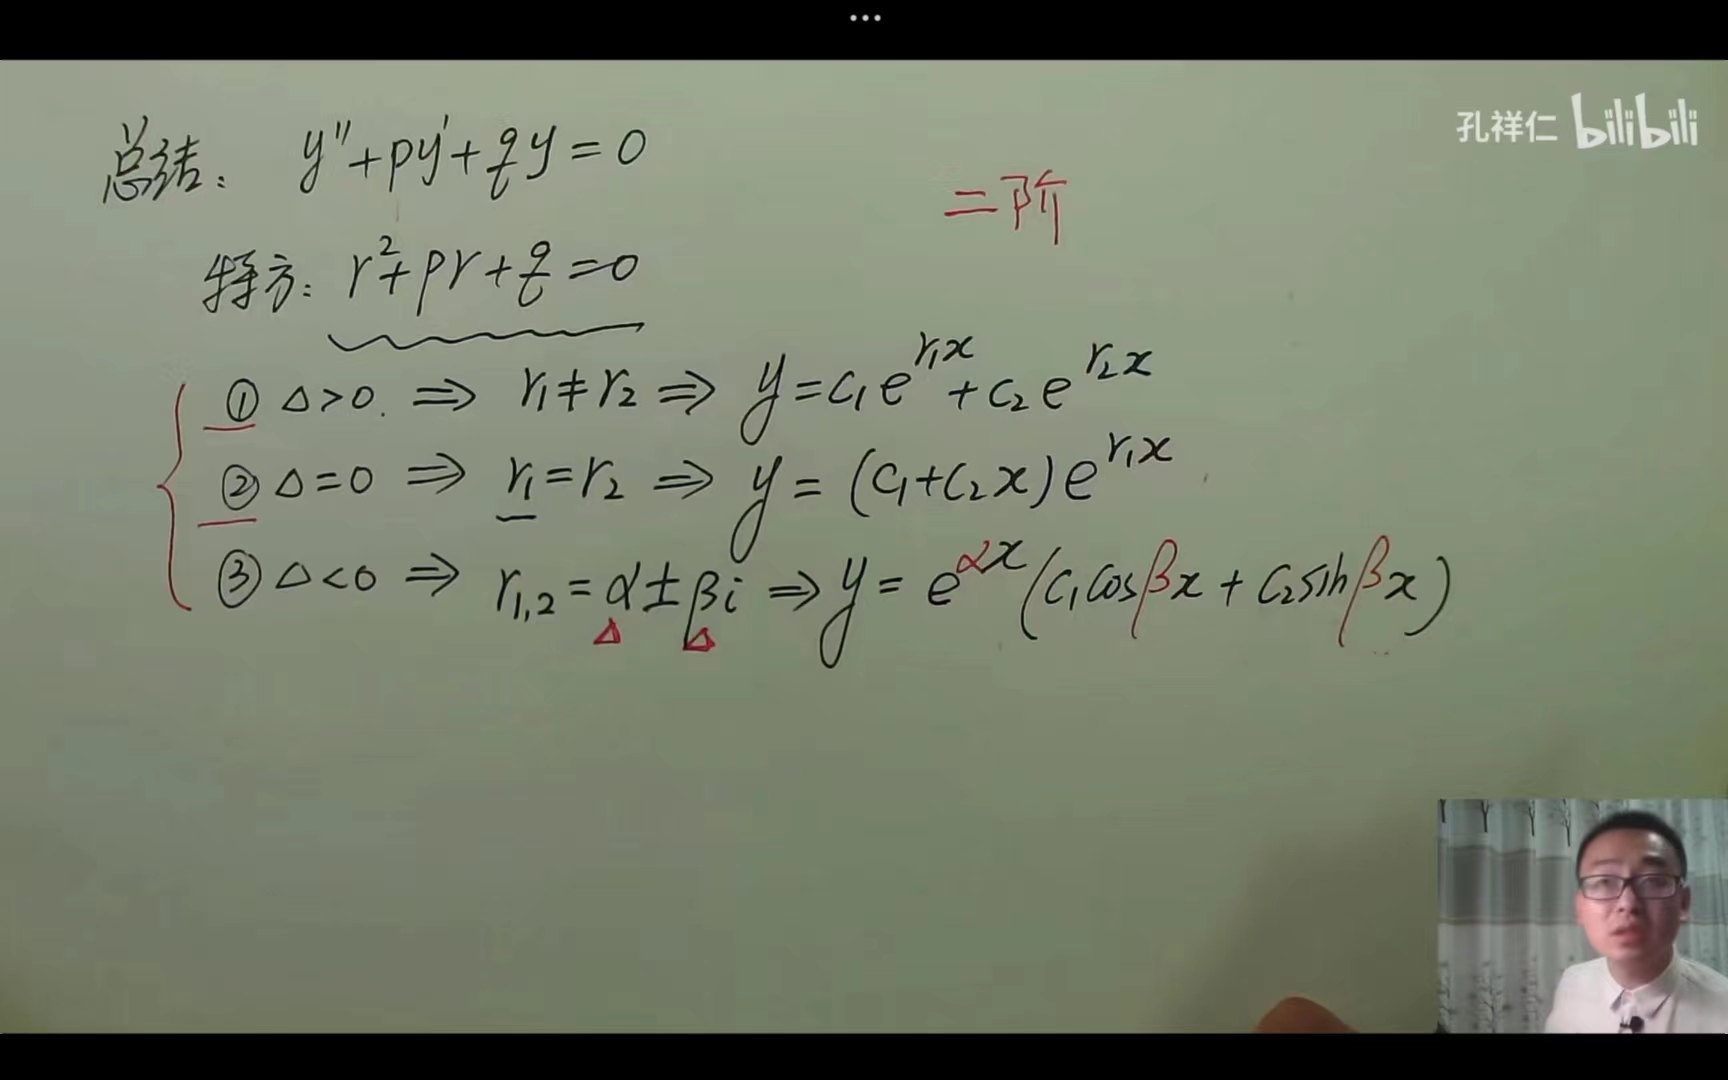 孔祥仁 bilibili
总结: y″+py′+qy=0
二阶
特方: r²+pr+q=0
① Δ>0. ⇒ r₁≠r₂ ⇒ y=c₁e^{r₁x}+c₂e^{r₂x}
② Δ=0 ⇒ r₁=r₂ ⇒ y=(c₁+c₂x)e^{r₁x}
③ Δ<0 ⇒ r₁,₂=α±βi ⇒ y=e^{αx}(c₁cosβx+c₂sinβx)